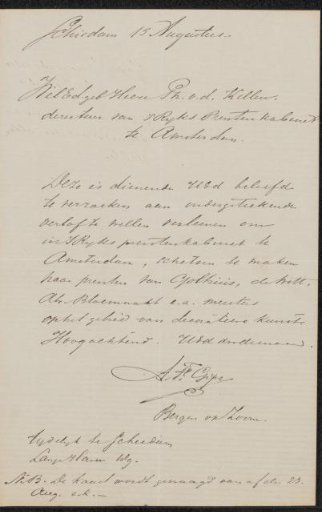 Schiedam 15 Augustus.
WelEd.geb Heer Ph. v.d. Kellen.
directeur van 's Ryks Prenten kabinet
te Amsterdam.
Deze is dienende UEd beleefd
te verzoeken aan ondergeteekende
verlof te willen verleenen om
in 's Ryks prentenkabinet te
Amsterdam, schetsen te maken
naar prenten van Goltzius, de Witt,
Ab. Bloemaert e.a. meesters
op het gebied van decoratieve kunst.
Hoogachtend. UEd dw dienaar
A. F. Gips
Bergen op Zoom.
tydelyk te Schiedam
Lange Haven
N.B. De kaart wordt gevraagd van af den 23.
Aug. a.s. —